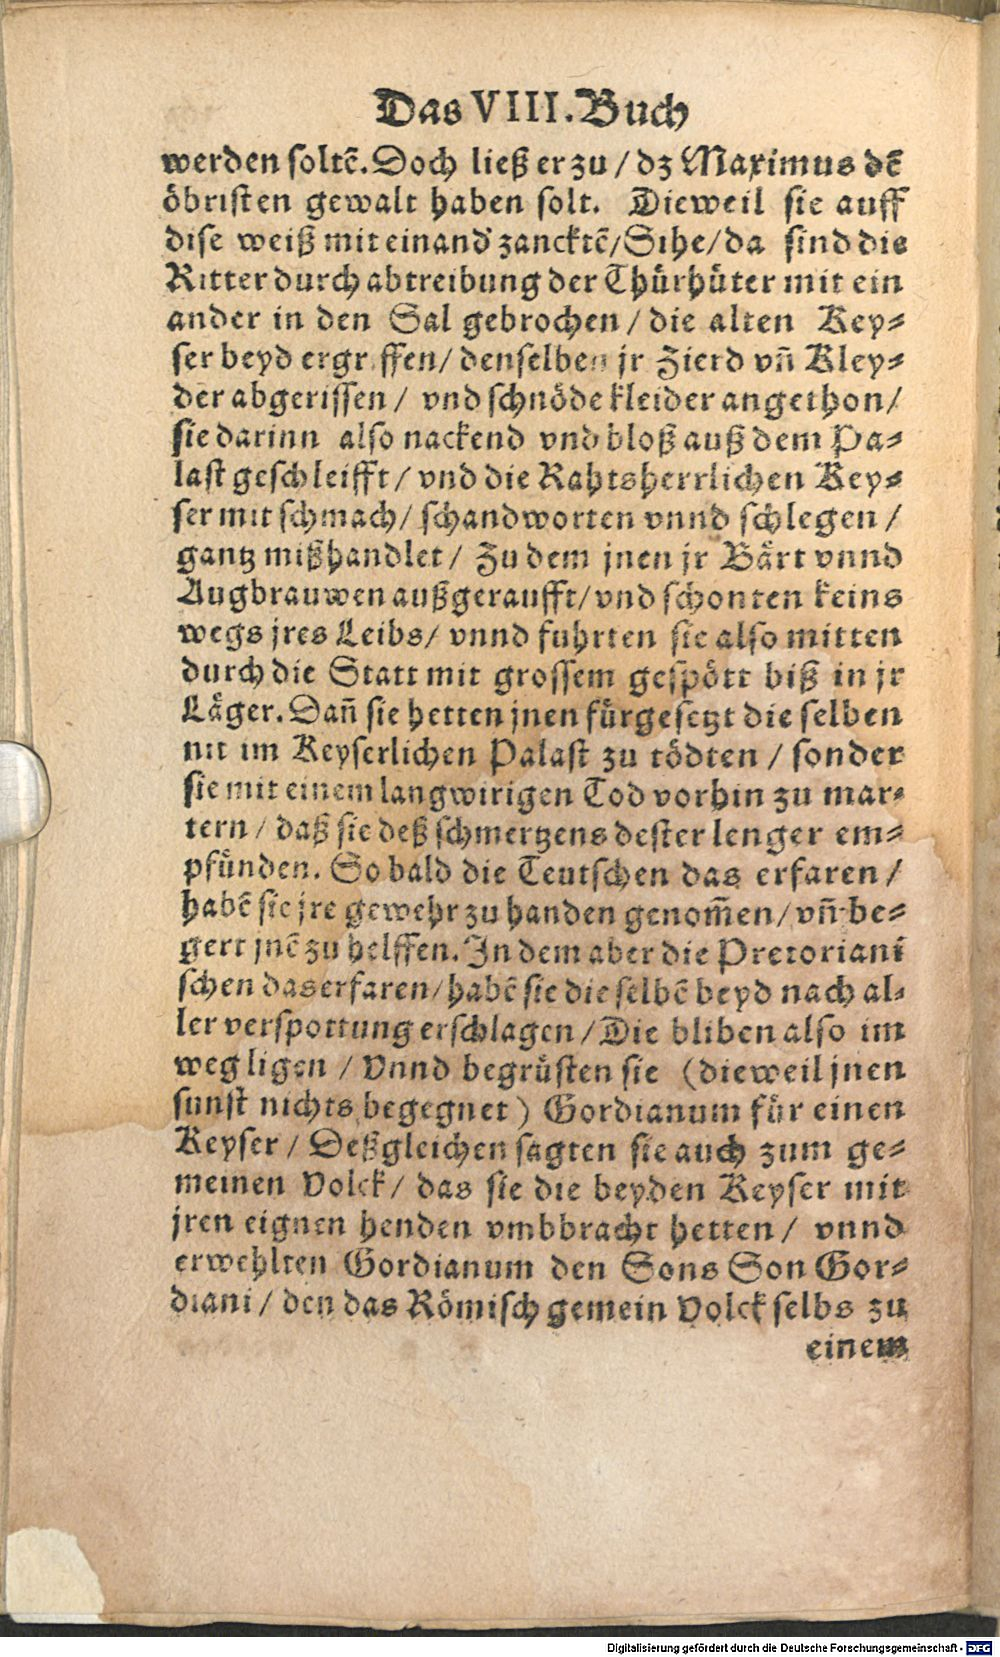 Das VIII. Buch
werden soltē. Doch ließ er zu / dz Maximus dē
öbristen gewalt haben solt. Dieweil sie auff
dise weiß mit einand' zancktē / Sihe / da sind die
Ritter durch abtreibung der Thürhüter mit ein
ander in den Sal gebrochen / die alten Key⸗
ser beyd ergriffen / denselben jr Zierd vn̄ Kley⸗
der abgerissen / vnd schnöde kleider angethon /
sie darinn also nackend vnd bloß auß dem Pa⸗
last geschleifft / vnd die Rahtsherrlichen Key⸗
ser mit schmach / schandworten vnnd schlegen /
gantz mißhandlet / Zu dem jnen jr Bärt vnnd
Augbrauwen außgeraufft / vnd schonten keins
wegs jres Leibs / vnnd fuhrten sie also mitten
durch die Statt mit grossem gespött biß in jr
Läger. Dan̄ sie hetten jnen fürgesetzt die selben
nit im Keyserlichen Palast zu tödten / sonder
sie mit einem langwirigen Tod vorhin zu mar⸗
tern / daß sie deß schmertzens dester lenger em⸗
pfünden. So bald die Teutschen das erfaren /
habē sie jre gewehr zu handen genom̄en / vn̄ be⸗
gert jnē zu helffen. In dem aber die Pretoriani
schen das erfaren / habē sie die selbē beyd nach al⸗
ler verspottung erschlagen / Die bliben also im
weg ligen / Vnnd begrüsten sie (dieweil jnen
sunst nichts begegnet) Gordianum für einen
Keyser / Deßgleichen sagten sie auch zum ge⸗
meinen Volck / das sie die beyden Keyser mit
jren eignen henden vmbbracht hetten / vnnd
erwehlten Gordianum den Sons Son Gor⸗
diani / den das Römisch gemein Volck selbs zu
einem
Digitalisierung gefördert durch die Deutsche Forschungsgemeinschaft - DFG